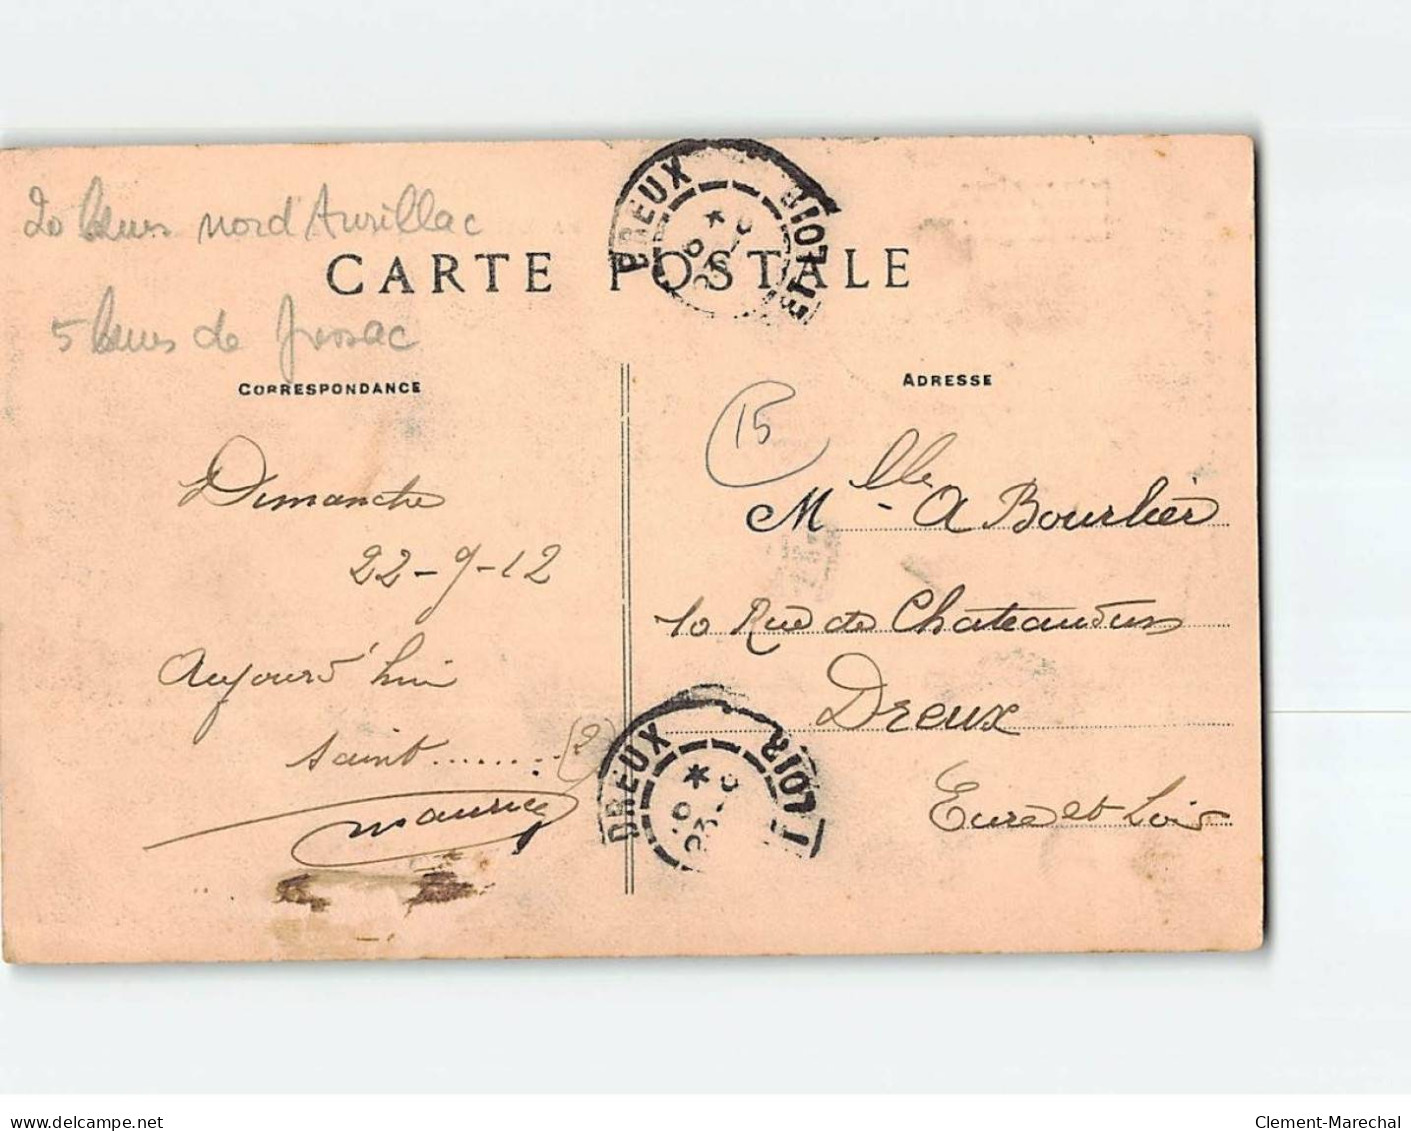 20 nord d'Aurillac
CARTE POSTALE
5 de
CORRESPONDANCE
ADRESSE
15
Dimanche
22-9-12
Aujourd'hui
saint........(2)
Maurice
Mlle A Bourlier
10 Rue de Chateaudun
Dreux
Eure et Loir
DREUX
ET-LOIR
23 - 9
DREUX
LOIR
23 - 9
www.delcampe.net
Clement-Marechal